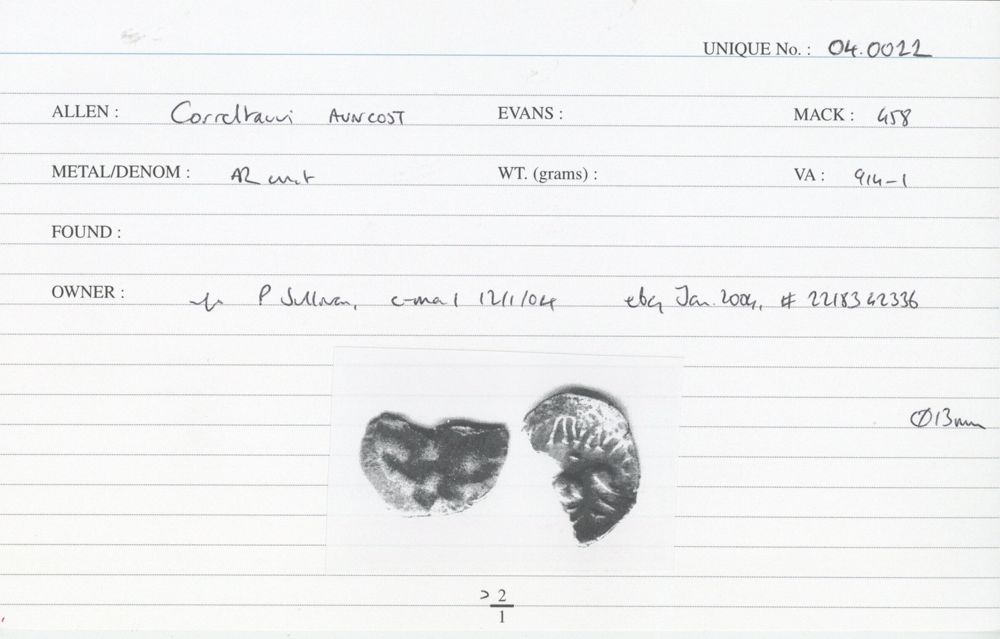 UNIQUE No. : 04.0022
ALLEN : Correltauvi AVN COST EVANS : MACK : 458
METAL/DENOM : AR unit WT. (grams) : VA : 914-1
FOUND :
OWNER : P Sullivan, e-mail 12/1/04 ebay Jan. 2004, # 2218342336
Ø13mm
> 2
1